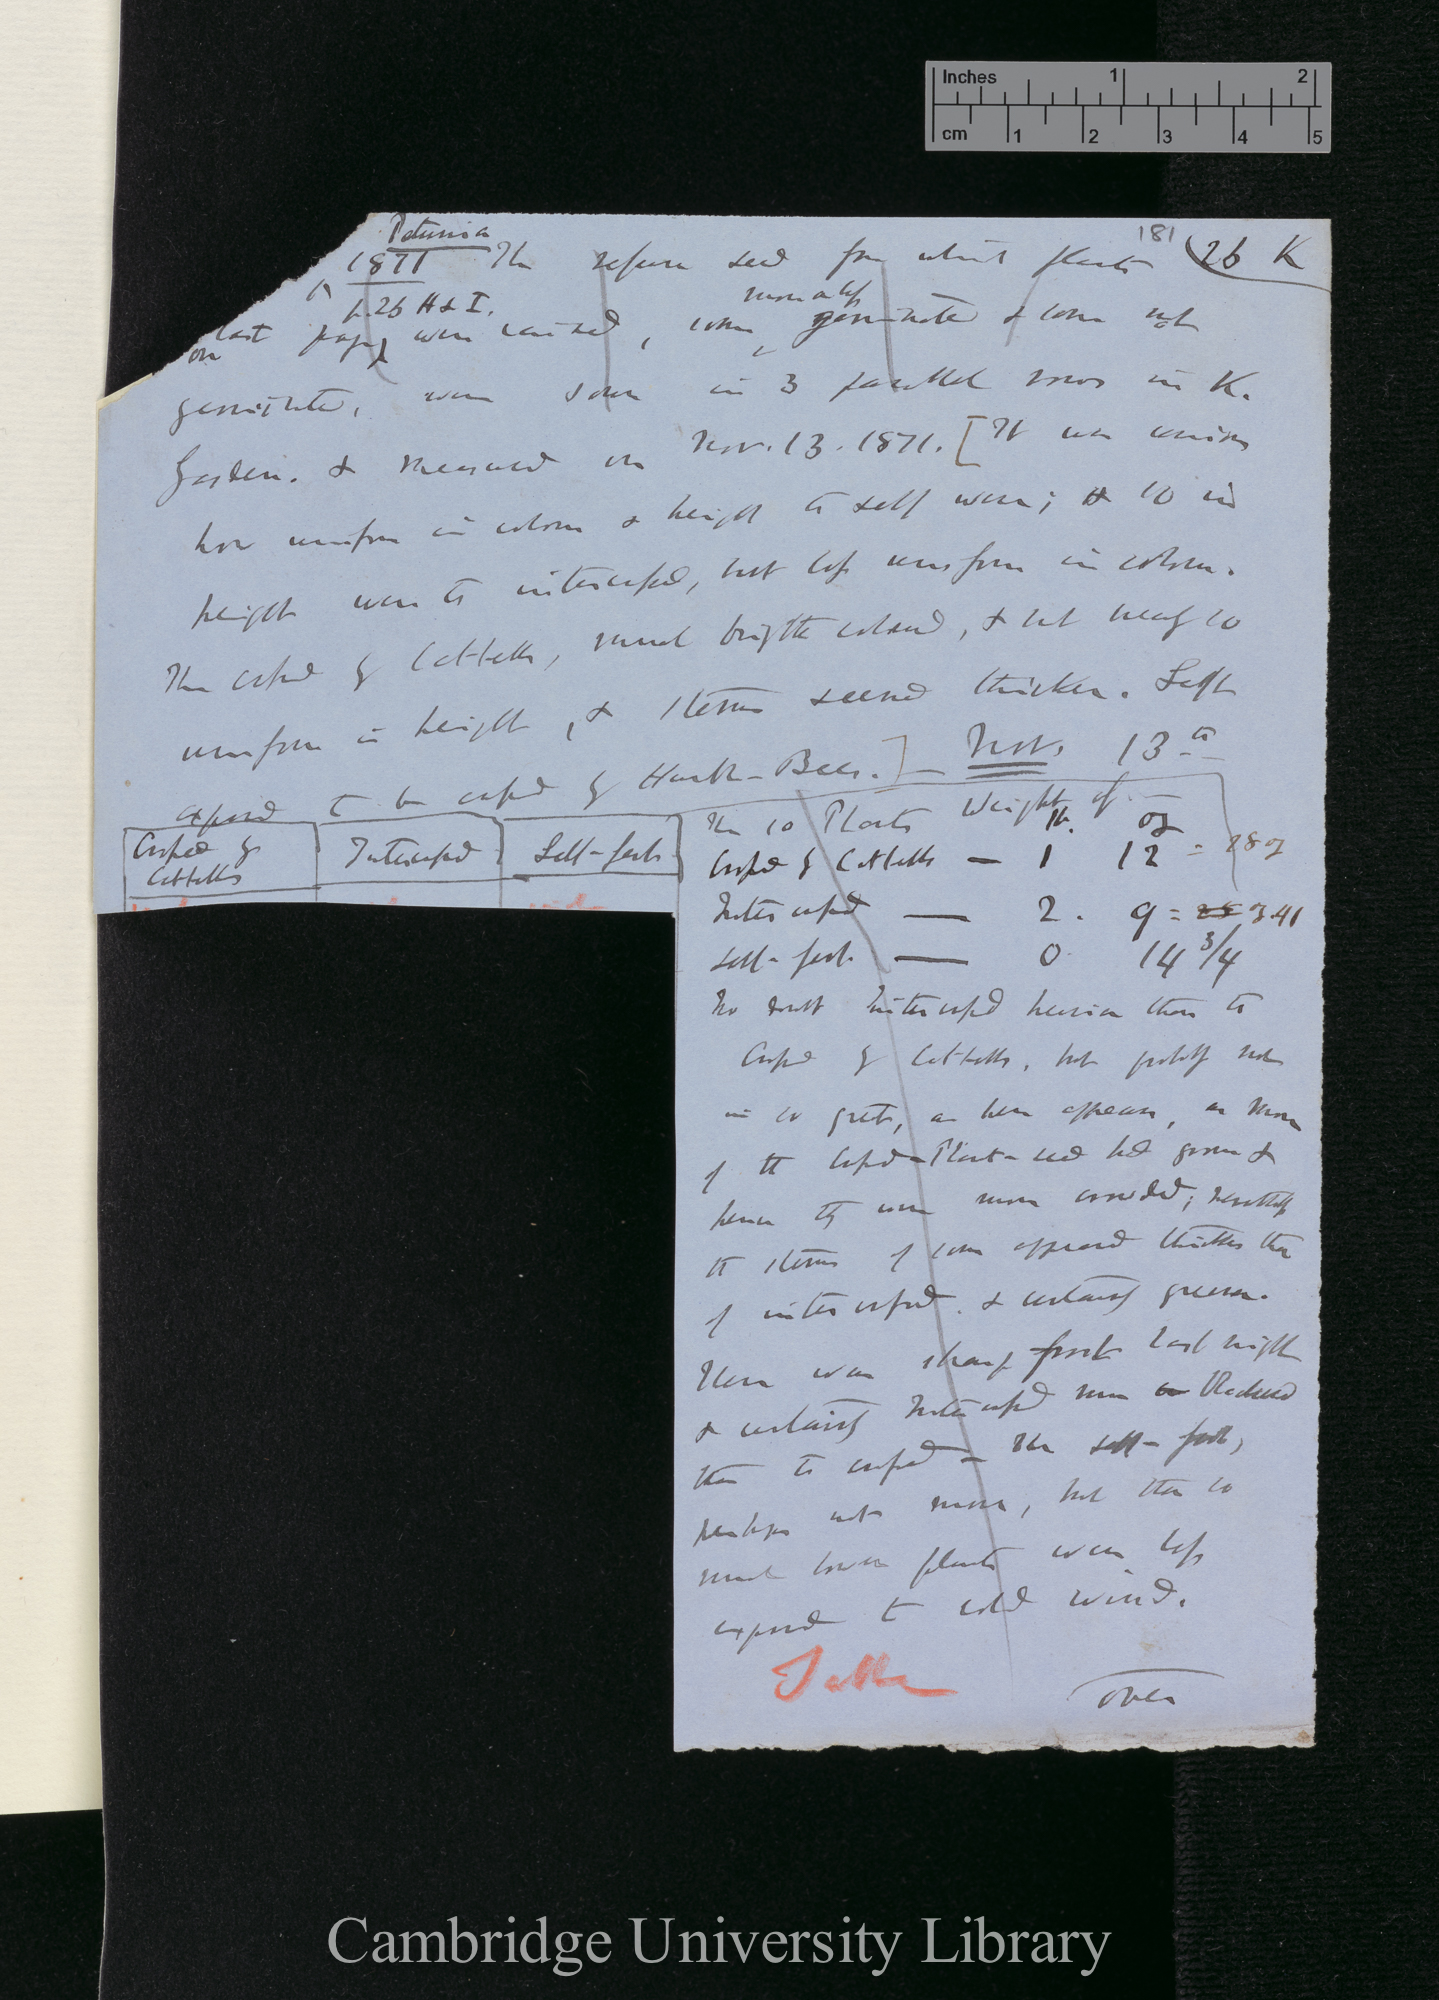 Inches 1 2
cm 1 2 3 4 5
Petunia
181
26 K
1871 The refuse seed from which plants
p. 26 H & I.
on last page were raised, some more or less germinated & some not
germinated, were sown in 3 parallel rows in K.
Garden. & measured on Nov. 13. 1871. [It was curious
how uniform in colour & height the self were; & so in
height were the intercrossed, but less uniform in colour.
The crossed by Cattells, much brighter coloured, & not nearly so
uniform in height, & stems seemed thicker. Selfs
exposed to be crossed by Humble-Bees.] — Nov. 13th
Crossed by Cattells
Intercrossed
Self-fert.
The 10 Plants Weight of —
lb. oz
Crossed by Cattells — 1 12 = 28 oz
Intercrossed — 2. 9 = oz 41
Self-fert. — 0 14 3/4
No doubt Intercrossed heavier than the
Crossed by Cattells, but probably not
in so great, as here appears, as more
of the crossed-Plant-seed had grown &
hence they were more crowded; nevertheless
the stems of some appeared thicker than
of intercrossed. & certainly greener.
There was sharp frost last night
& certainly Intercrossed more blackened
than the crossed — The self-fert,
perhaps not more, but then so
much lower plants were less
exposed to cold wind.
Table
over
Cambridge University Library